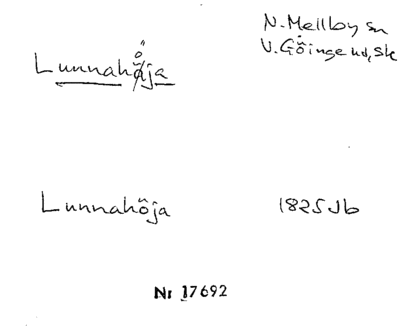 Lunnahöja
N. Mellby sn
V. Göinge hd, Sk
Lunnahöja
1825 Jb
Nr 17692